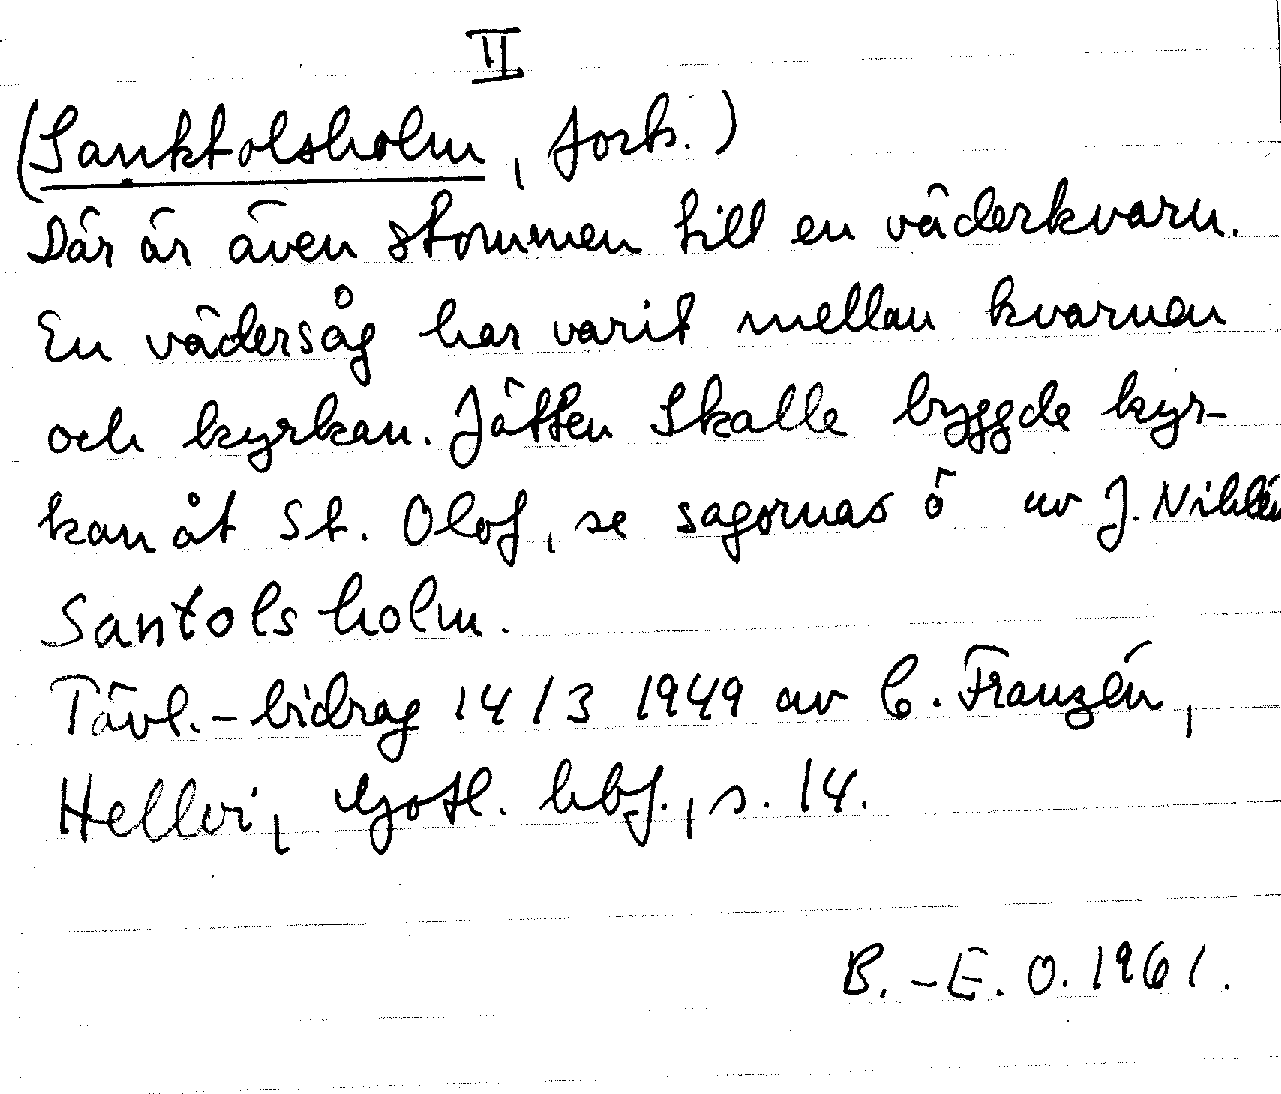 II
(Sanktolsholm, forts.)
Där är även stommen till en väderkvarn.
En vädersåg har varit mellan kvarnen
och kyrkan. Jätten Skalle byggde kyr-
kan åt St. Olof, se sagornas ö av J. Nihlén
Santolsholm.
Tävl.-bidrag 14/3 1949 av C. Franzén,
Hellvi, Gotl. hbf., s. 14.
B.-E. O. 1961.